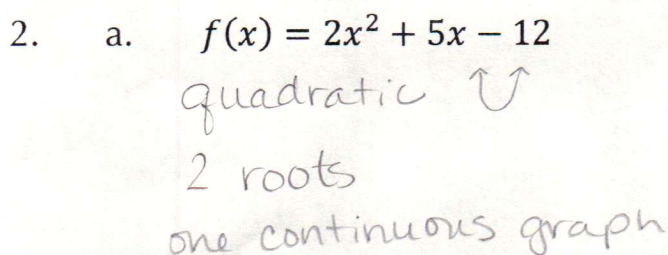 2. a. f(x) = 2x² + 5x – 12
quadratic
2 roots
one continuous graph